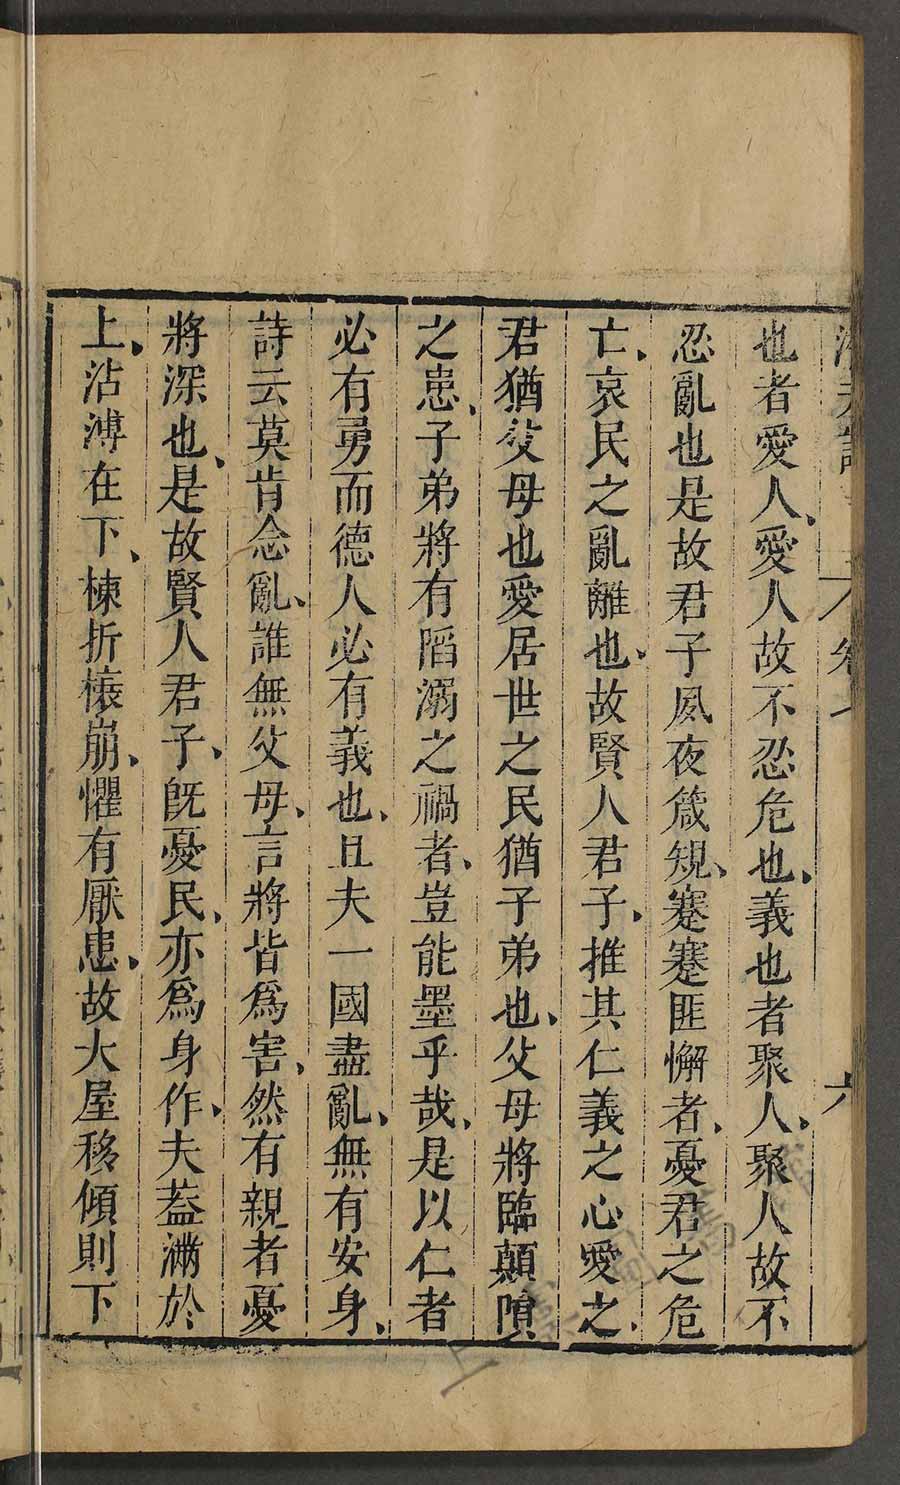 卷
六
也者愛人、愛人故不忍危也、義也者聚人、聚人故不
忍亂也是故君子夙夜箴規、蹇蹇匪懈者、憂君之危
亡、哀民之亂離也、故賢人君子、推其仁義之心愛之、
君猶父母也愛居世之民猶子弟也、父母將臨顛隕
之患、子弟將有陷溺之禍者、豈能墨乎哉、是以仁者
必有勇而德人必有義也、且夫一國盡亂、無有安身、
詩云莫肯念亂、誰無父母、言將皆為害、然有親者憂
將深也、是故賢人君子、既憂民、亦為身作、夫蓋滿於
上、沾溥在下、棟折榱崩、懼有厭患、故大屋移傾則下